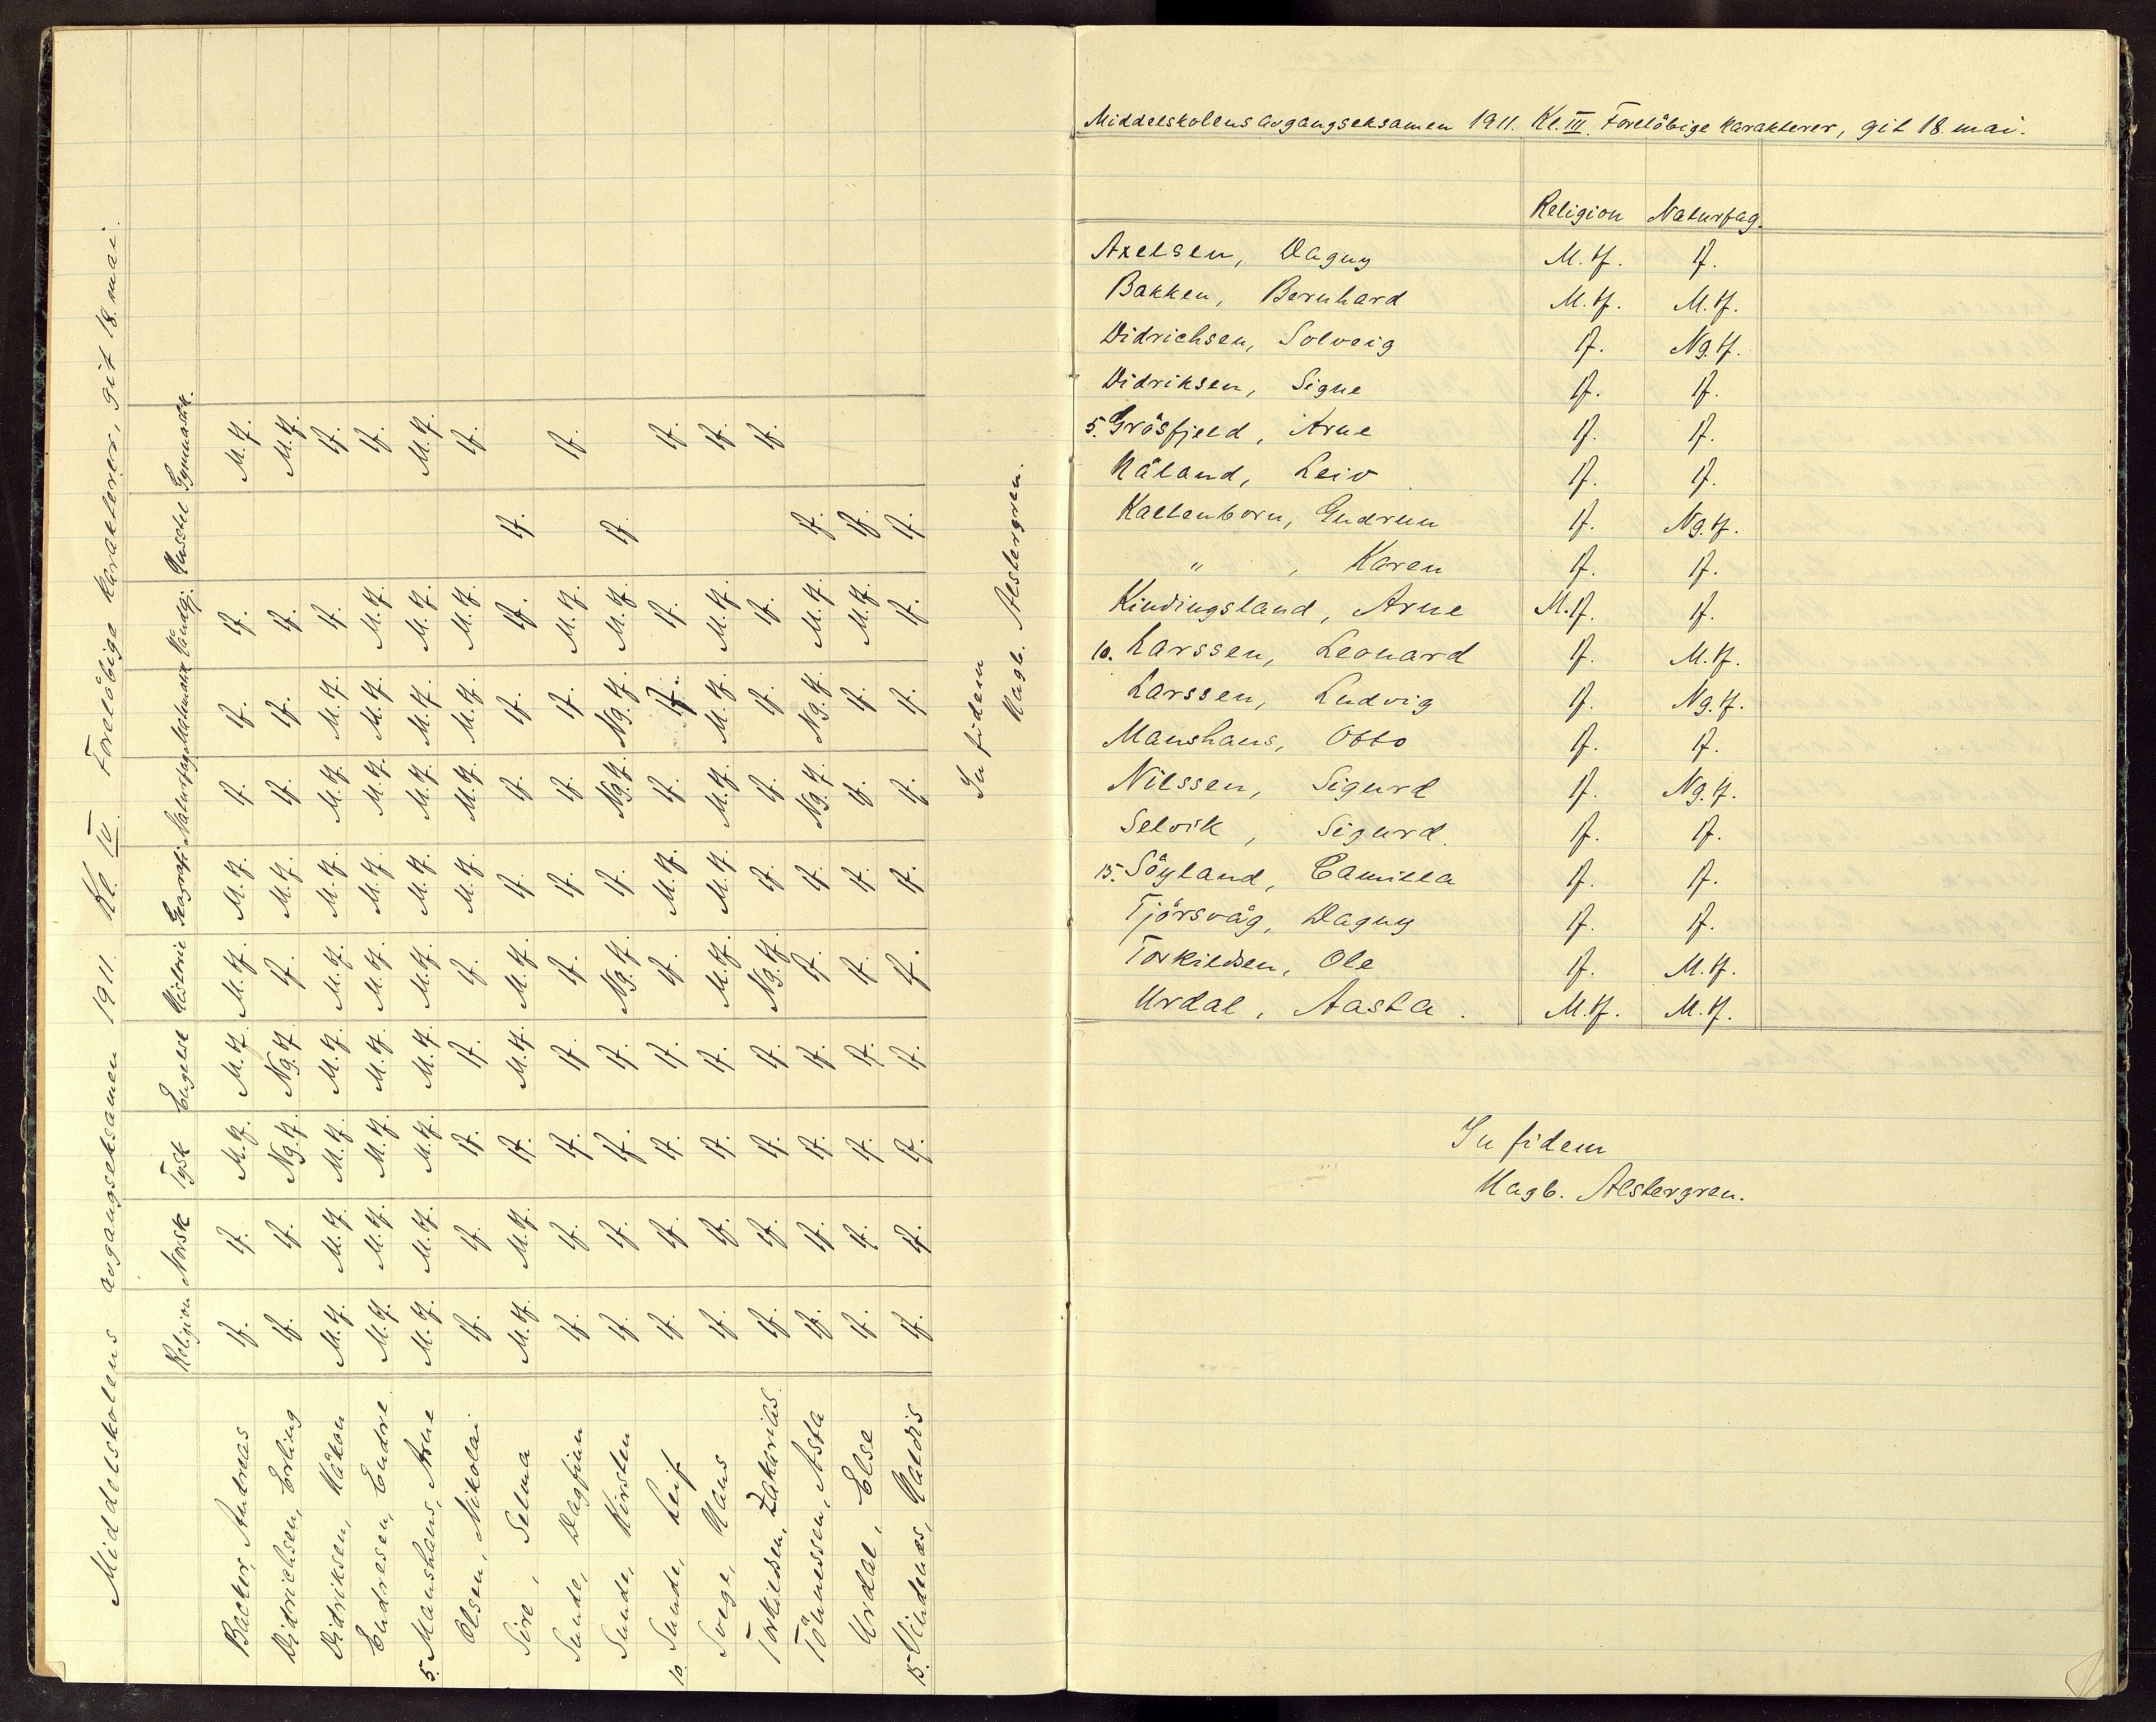 Middelskolens avgangseksamen 1911. Kl. IV. Forelöbige karakterer, git 18. mai.
Religion Norsk Tysk Engelsk Historie Geografi Naturfag Matematik Håndgj. Husstel Gymnastik.
Backer, Andreas tf. tf. M.tf. M.tf. M.tf. M.tf. tf. tf. tf. M.tf.
Didrichsen, Erling tf. tf. Ng.tf. Ng.tf. tf. M.tf. tf. tf. tf. M.tf.
Didriksen, Håkon M.tf. M.tf. M.tf. M.tf. M.tf. M.tf. M.tf. M.tf. tf. tf.
Endresen, Endre M.tf. M.tf. M.tf. M.tf. M.tf. M.tf. M.tf. M.tf. M.tf. tf.
5. Manshaus, Arne M.tf. M.tf. M.tf. M.tf. M.tf. M.tf. M.tf. M.tf. M.tf. M.tf.
Olsen, Nikolai tf. tf. tf. tf. tf. M.tf. M.tf. M.tf. M.tf. tf.
Sire, Selma M.tf. M.tf. tf. M.tf. M.tf. tf. tf. tf. tf. tf.
Sunde, Dagfinn tf. tf. tf. tf. tf. tf. tf. tf. M.tf. tf.
Sunde, Kirsten tf. tf. tf. tf. Ng.tf. tf. Ng.tf. Ng.tf. M.tf. tf.
10. Sunde, Leif tf. tf. tf. tf. tf. M.tf. tf. tf. tf. tf.
Svege, Hans tf. tf. tf. tf. M.tf. M.tf. M.tf. M.tf. M.tf. tf.
Torkildsen, Zakarias. tf. tf. tf. tf. Ng.tf. tf. tf. tf. tf. tf.
Tönnessen, Asta tf. tf. tf. tf. tf. tf. Ng.tf. Ng.tf. M.tf. tf.
Urdal, Else tf. tf. tf. tf. tf. tf. tf. tf. M.tf. tf.
15. Vindenæs, Haldis tf. tf. tf. tf. tf. tf. tf. tf. tf. tf.
In fidem
Hagb. Alstergren.
Middelskolens avgangseksamen 1911. Kl. III. Forelöbige karakterer, git 18. mai.
Religion Naturfag.
Axelsen, Dagny M.tf. tf.
Bakken, Bernhard M.tf. M.tf.
Didrichsen, Solveig tf. Ng.tf.
Didriksen, Signe tf. tf.
5. Gråsfjeld, Arne tf. tf.
Håland, Leiv tf. tf.
Kaltenborn, Gudrun tf. Ng.tf.
" , Karen tf. tf.
Kindingsland, Arne M.tf. tf.
10. Larssen, Leonard tf. M.tf.
Larssen, Ludvig tf. Ng.tf.
Manshaus, Otto tf. tf.
Nilssen, Sigurd tf. Ng.tf.
Selvik, Sigurd. tf. tf.
15. Söyland, Camilla tf. tf.
Tjörsvåg, Dagny tf. tf.
Torkildsen, Ole tf. M.tf.
Urdal, Aasta. M.tf. M.tf.
In fidem
Hagb. Alstergren.